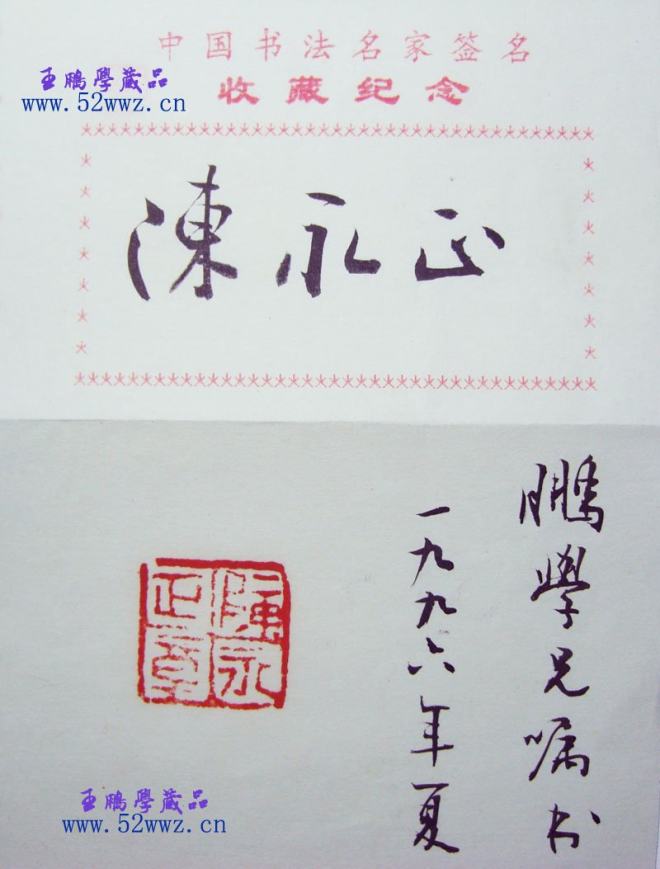 中国书法名家签名
收藏纪念
王鵬學藏品
www.52wwz.cn
陳永正
鵬學兄嘱书
一九九六年夏
陳永
正章
王鵬學藏品
www.52wwz.cn